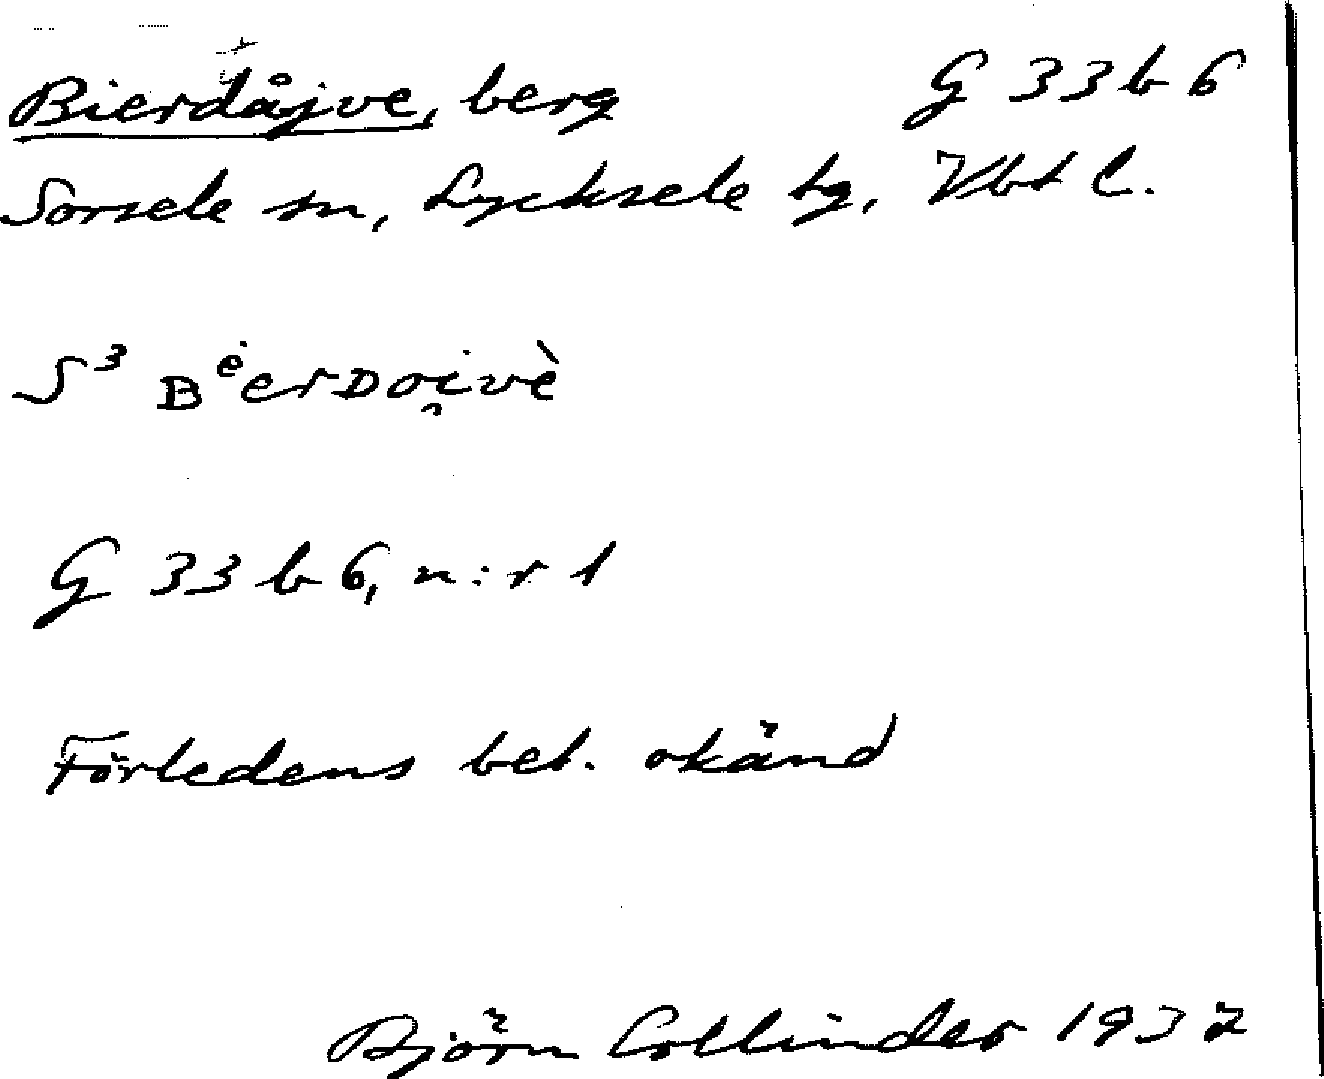 Bierdåjve, berg G 33 b 6
Sorsele sn, Lycksele tg, Vbt l.
S³ Bᵉ̇erDo̯ivè
G 33 b 6, n:r 1
Förledens bet. okänd
Björn Collinder 1937